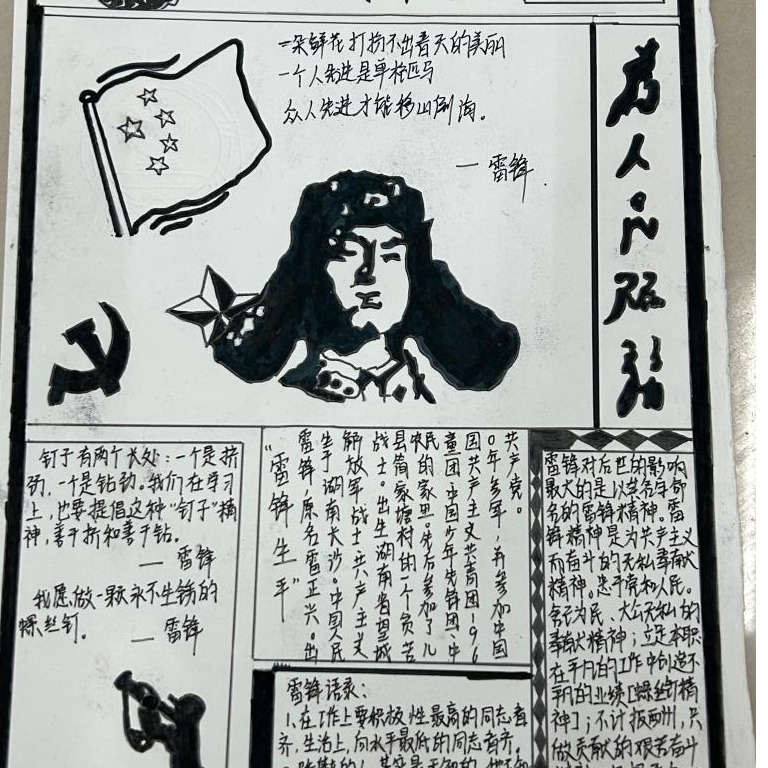 一朵鲜花打扮不出春天的美丽
一个人先进是单枪匹马
众人先进才能移山倒海。
— 雷锋.
为人民服务
钉子有两个长处：一个是挤
劲，一个是钻劲。我们在学习
上，也要提倡这种"钉子"精
神，善于挤和善于钻。
— 雷锋
我愿做一颗永不生锈的
螺丝钉。
— 雷锋
"雷锋生平"
雷锋，原名雷正兴。出
生于湖南长沙。中国人民
解放军战士，共产主义
战士。出生湖南省望城
县简家塘村的一个贫苦
农民的家里。先后参加了儿
童团、中国少年先锋团、中
国共产主义共青团。196
0年参军，并参加中国
共产党。
雷锋对后世的影响
最大的是以其名字命
名的雷锋精神。雷
锋精神是为共产主义
而奋斗的无私奉献
精神。忠于党和人民。
舍己为民、大公无私的
奉献精神；立足本职
在平凡的工作中创造不
平凡的业绩[螺丝钉精
神]；不计报酬，只
做贡献的艰苦奋斗
雷锋语录：
1、在工作上要积极性最高的同志看
齐，生活上，向水平最低的同志看齐。